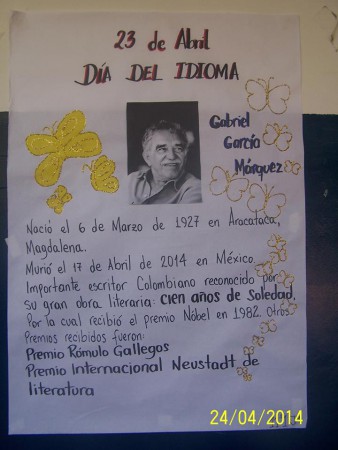 23 de Abril
DÍA DEL IDIOMA
Gabriel
García
Márquez
Nació el 6 de Marzo de 1927 en Aracataca,
Magdalena.
Murió el 17 de Abril de 2014 en México.
Importante escritor Colombiano reconocido por
su gran obra literaria: cien años de Soledad,
Por la cual recibió el premio Nóbel en 1982. Otros
Premios recibidos fueron:
Premio Rómulo Gallegos
Premio Internacional Neustadt de
literatura
24/04/2014